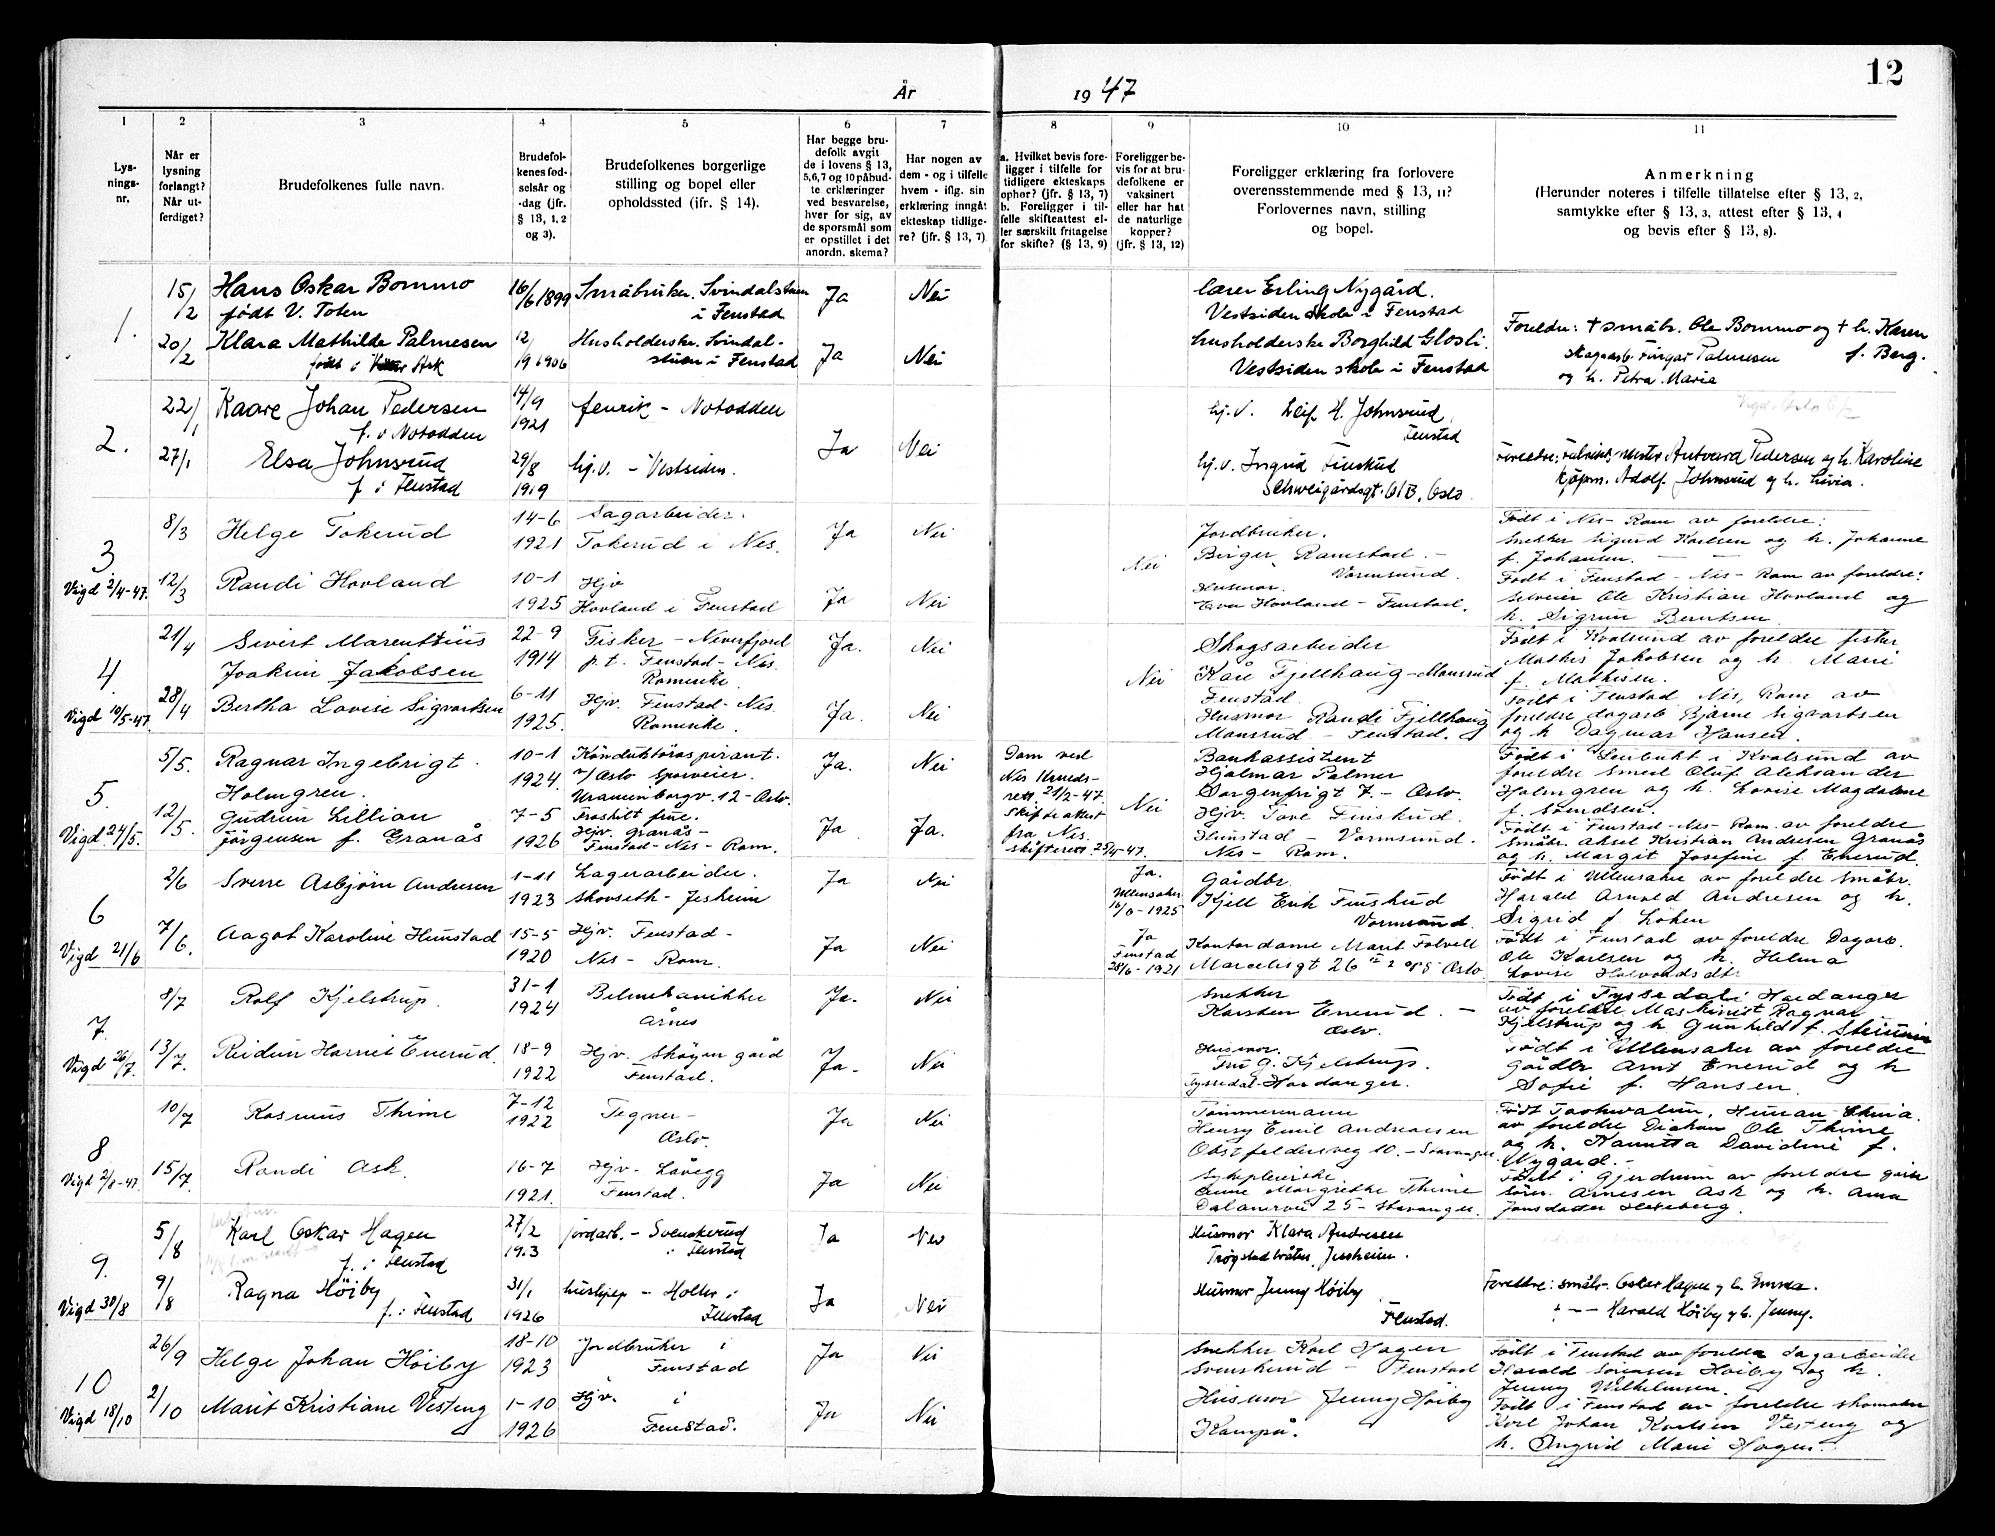 12
År 1947
1 2 3 4 5 6 7 8 9 10 11
Lys-
nings-
nr.
Når er
lysning
forlangt?
Når ut-
ferdiget?
Brudefolkenes fulle navn.
Brudefol-
kenes fød-
selsår og
-dag (jfr.
§ 13, 1, 2
og 3).
Brudefolkenes borgerlige
stilling og bopel eller
opholdssted (ifr. § 14).
Har begge bru-
defolk avgit
de i lovens § 13,
5,6,7 og 10 påbud-
te erklæringer
ved besvarelse,
hver for sig, av
de spørsmål som
er opstillet i det
anordn. skema?
Har nogen av
dem - og i tilfelle
hvem - iflg. sin
erklæring inngått
ekteskap tidlige-
re? (jfr. § 13, 7).
a. Hvilket bevis fore-
ligger i tilfelle for
tidligere ekteskaps
ophør? (jfr. § 13, 7)
b. Foreligger i til-
felle skifteattest el-
ler særskilt fritagelse
for skifte? (§ 13, 9)
Foreligger be-
vis for at bru-
defolkene er
vaksinert
eller har hat
de naturlige
kopper?
(jfr. § 13, 12)
Foreligger erklæring fra forlovere
overensstemmende med § 13, 11?
Forlovernes navn, stilling
og bopel.
Anmerkning
(Herunder noteres i tilfelle tillatelse efter § 13, 2,
samtykke efter § 13, 3, attest efter § 13, 4
og bevis efter § 13, 8).
1.
15/2 Hans Oskar Bommo 16/6 1899 Småbruker. Svindalstuen Ja Nei lærer Erling Nygård.
født V. Toten i Fenstad Vestsiden skole i Fenstad
20/2 Klara Mathilde Palmesen 12/9 1906 Husholderske. Svindal- Ja Nei husholderske Borghild Glosli.
født i Ask stuen i Fenstad Vestsiden skole i Fenstad
Foreldre: + småbr. Ole Bommo og + h. Karen
f. Berg.
Palmesen
og h. Petra Maria
2.
22/1 Kaare Johan Pedersen 14/9 1921 - Notodden Ja Nei hj.v. Leif H. Johnsrud
f. i Notodden Fenstad
27/1 Elsa Johnsrud 29/8 1919 hj.v. - Vestsiden. hj.v. Ingrid Finskud
f. i Fenstad Schweigårdsgt. 61B, Oslo.
Vigd. Oslo
Foreldre: Antvard Pedersen og h. Karoline
kjøpm. Adolf Johnsrud og h. Livia.
3.
Vigd 2/4-47.
8/3 Helge Tokerud 14-6 1921 Sagarbeider. Ja Nei Jordbruker.
Tokerud i Nes. Nei Birger Ramstad. -
Vormsund.
12/3 Randi Hovland 10-1 1925 Hjv Ja Nei Husmor.
Hovland i Fenstad Eva Hovland - Fenstad.
Født i Nes - Rom av foreldre:
snekker Sigurd Karlsen og h. Johanne
f. Johansen.
Født i Fenstad - Nes - Rom av foreldre:
Ole Kristian Hovland og
h. Sigrun Berntsen
4.
Vigd 10/5-47.
21/4 Sivert Marentius 22-9 1914 Fisker - Neverfjord Ja. Nei Skogsarbeider
Joakim Jakobsen p.t. Fenstad - Nes. Nei Kåre Fjellhaug - Monsrud
Romerike Fenstad.
28/4 Bertha Lovise Sigvartsen 6-11 1925. Hjv. Fenstad - Nes Ja. Nei Husmor Randi Fjellhaug
Romerike. Monsrud - Fenstad.
Født i Kvalsund av foreldre fisker
Mathis Jakobsen og h. Marie
f. Mathisen.
Født i Fenstad Nes, Rom av
foreldre dagarb Bjarne Sigvartsen
og h Dagmar Hansen.
5.
Vigd. 24/5.
5/5. Ragnar Ingebrigt 10-1 1924. Konduktøraspirant. Ja. Nei Dom ved Bankassistent
Holmgren. v/Oslo Sporveier. Nes Herreds- Hjalmar Palmer
Uranienborgv. 12 - Oslo. rett. 21/2-47. Nei Sorgenfrigt 7. - Oslo.
12/5. Gudrun Lillian 7-5 1926 Fraskilt frue. Ja Ja. Skifteattest Hjv. Tove Finskud.
Jørgensen f. Granås Hjv. Granås - fra Nes. Hunstad - Vormsund.
Fenstad - Nes - Rom. skifterett 25/4-47. Nes - Rom.
Født i Leirbukt i Kvalsund av
foreldre smed Oluf Aleksander
Holmgren og h. Lovise Magdalene
f.
Født i Fenstad - Nes - Rom. av foreldre
småbr. Aksel Kristian Andersen Granås
og h. Margit Josefine f. Enerud.
6
Vigd 21/6
2/6 Sverre Asbjørn Andresen 1-11 1923 Lagerarbeider. Ja Nei Ja. Gårdbr.
Skovseth - Jessheim Ullensaker Kjell Erik Finskud
Vormsund.
7/6. Aagot Karoline Hunstad 15-5 1920 Hjv. Fenstad - Ja Nei Ja Kontordame Marit Folvell
Nes - Rom. Fenstad 28/6-1921 Marcelisgt 26 Oslo
Født i Ullensaker av foreldre Småbr.
Harald Arnold Andresen og h.
Sigrid f. Løken
Født i Fenstad av foreldre Dagarb.
Ole Karlsen og h. Helma
Lovise Halvorsdtr.
7.
Vigd 26/7.
8/7 Rolf Kjelstrup. 31-1 1924 Bilmekaniker Ja. Nei Snekker
Årnes Karsten Enerud. -
Oslo.
13/7. Reidun Harriet Enerud. 18-9 1922 Hjv. Skøyen gård Ja. Nei Husmor.
Fenstad. Fru G. Kjelstrup.
Tyssedal - Hardanger.
Født i Tyssedal i Hardanger
av foreldre Maskinist Ragnar
Kjelstrup og h. Gunhild f.
Født i Ullensaker av foreldre
Gårdbr Arnt Enerud og h
Sofie f. Hansen.
8
Vigd 2/8-47.
10/7 Rasmus Thime 7-12 1922 Tegner - Ja Nei Tømmermann
Oslo. Henry Emil Andreassen
Obstfeldersveg 10. - Stavanger.
15/7. Randi Ask 16-7 1921. Hjv - Låvegg Ja Nei Sykepleierske
Fenstad. Anne Margrethe Thime
Dalaneveien 25 - Stavanger.
Født Taohwalun, Hunan - China.
av foreldre Diakon Ole Thime
og h. Davidine f.
Nygård. -
Født i Gjerdrum av foreldre
Arnesen Ask og h. Anna
Jonsdatter Hexeberg.
9.
Vigd 30/8
5/8 Karl Oskar Hagen 27/2 1913 jordarb. - Svenskerud Ja Nei Husmor Klara Andresen
f. i Fenstad i Fenstad Jessheim.
9/8 Ragna Høiby 31/1 1926 hushjelp - Holter i Ja Nei Husmor Jenny Høiby
f. i Fenstad Fenstad Fenstad.
Foreldre: småbr. Oskar Hagen og h. Emma
+ - - Harald Høiby og h. Jenny.
10
Vigd 18/10
26/9 Helge Johan Høiby 18-10 1923 Jordbruker i Ja Nei Snekker Karl Hagen
Fenstad Svenskerud - Fenstad
2/10 Marit Kristiane Vesteng 1-10 1926 Hjv. i Ja Nei Husmor Jenny Høiby
Fenstad. Kampå.
Født i Fenstad av foreldre Sagarbeider
Harald Sørensen Høiby og h.
Jenny Wilhelmsen.
Født i Fenstad av foreldre skomaker
Karl Johan Karlsen Vesteng og
h. Ingrid Marie Hagen.